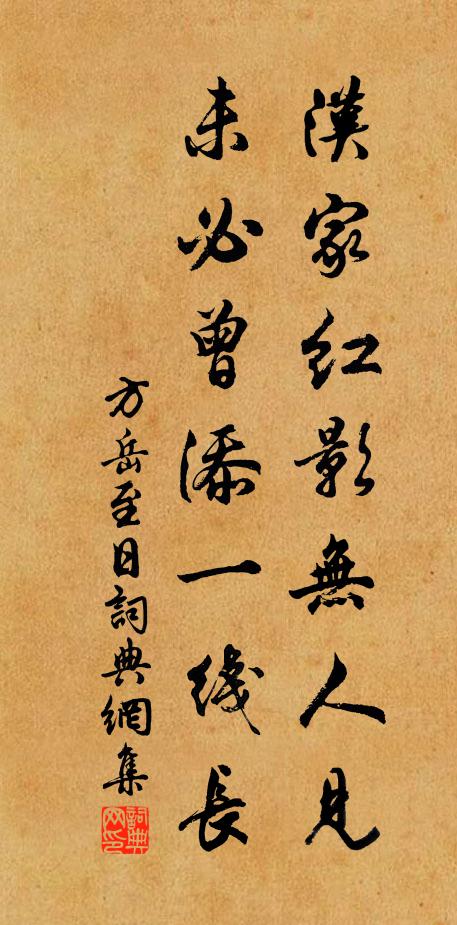 漢家紅影無人見
未必曾添一綫長
方岳至日詞典網集
詞典网印